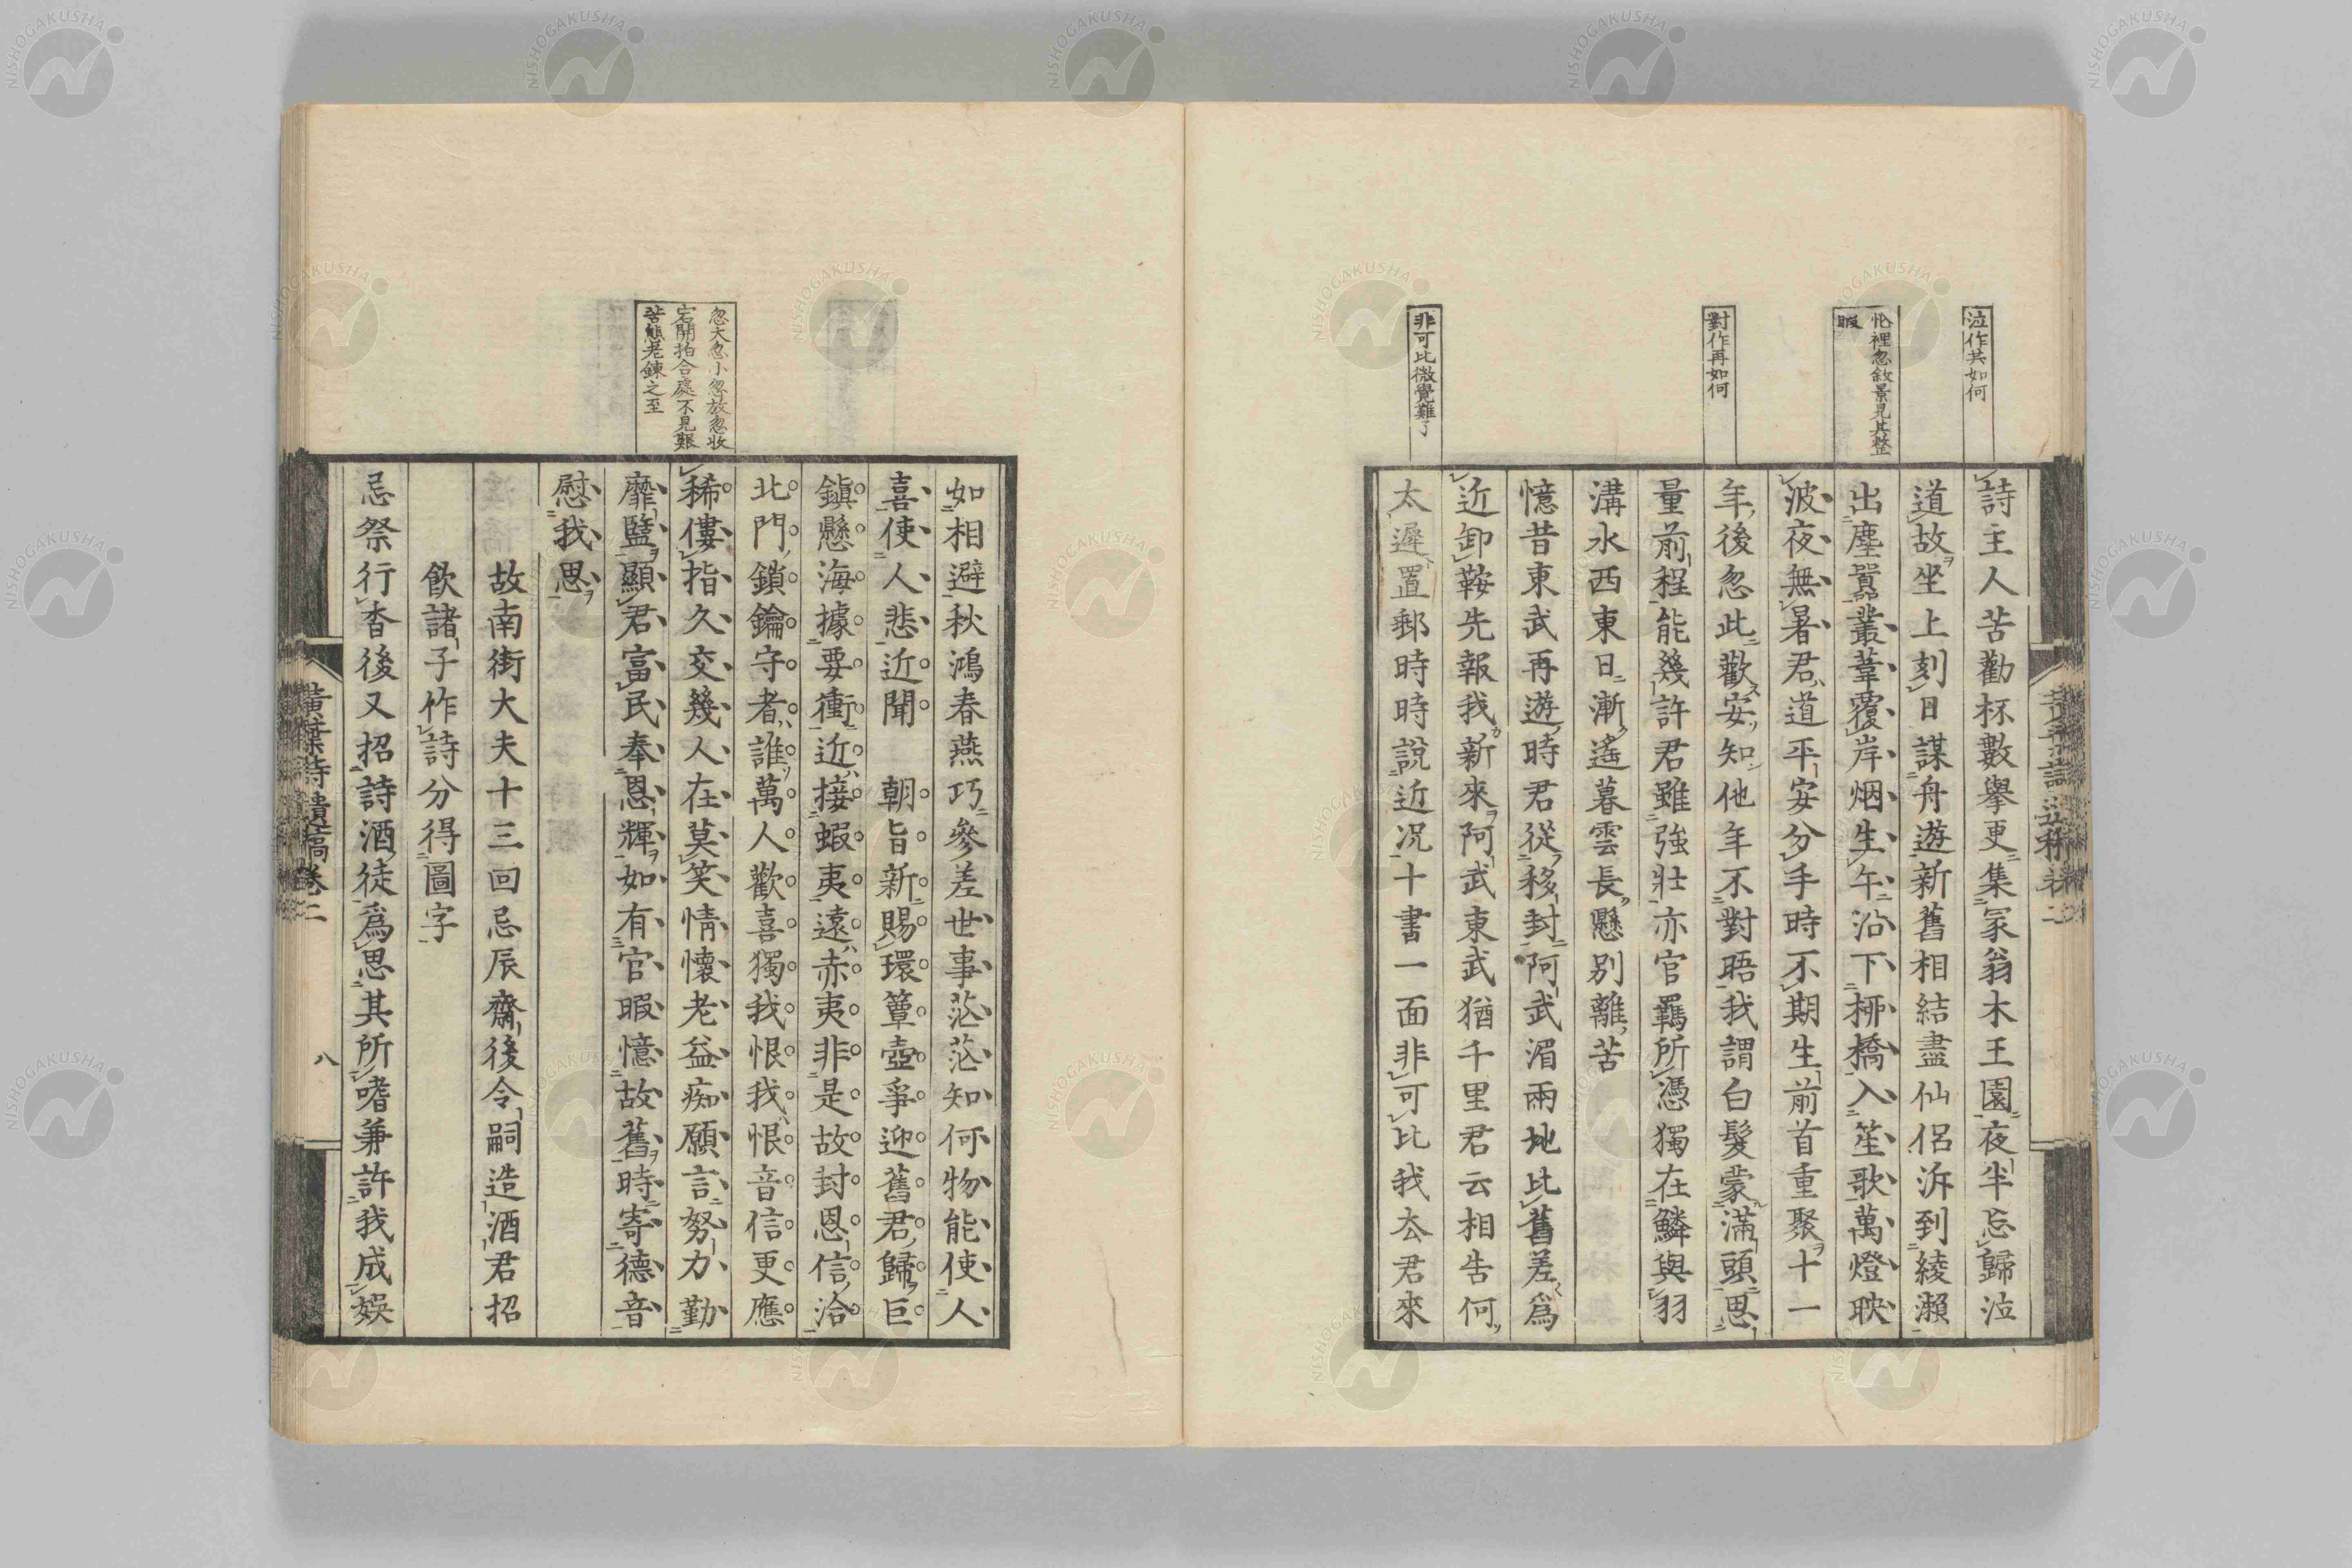 泣作共如何
忙裡忽敘景見其整
暇
對作再如何
非可比微覺難了
詩主人苦勸杯數擧更集冢翁木王園夜半忘歸泣
道故坐上刻日謀舟遊新舊相結盡仙侶泝到綾瀨
出塵囂叢葦覆岸烟生午沿下柳橋入笙歌萬燈映
波夜無暑君道平安分手時不期生前首重聚十一
年後忽此歡安知他年不對晤我謂白髮蒙滿頭思
量前程能幾許君雖強壯亦官羈所憑獨在鱗與羽
溝水西東日漸遙暮雲長懸別離苦
憶昔東武再遊時君從移封阿武湄兩地比舊差爲
近卸鞍先報我新來阿武東武猶千里君云相告何
太遲置郵時時說近况十書一面非可比我去君來
忽大忽小忽放忽收
宕開拍合處不見艱
苦態老鍊之至
如相避秋鴻春燕巧參差世事茫茫知何物能使人
喜使人悲近聞 朝旨新賜環簟壺爭迎舊君歸巨
鎭懸海據要衝近接蝦夷遠赤夷非是故封恩信洽
北門鎖鑰守者誰萬人歡喜獨我恨我恨音信更應
稀僂指久交幾人在莫笑情懷老益痴願言努力勤
靡盬顯君富民奉恩輝如有官暇憶故舊時寄德音
慰我思
故南街大夫十三回忌辰齋後令嗣造酒君招
飲諸子作詩分得圖字
忌祭行香後又招詩酒徒爲思其所嗜兼許我成娛
黃葉詩遺稿卷二
八